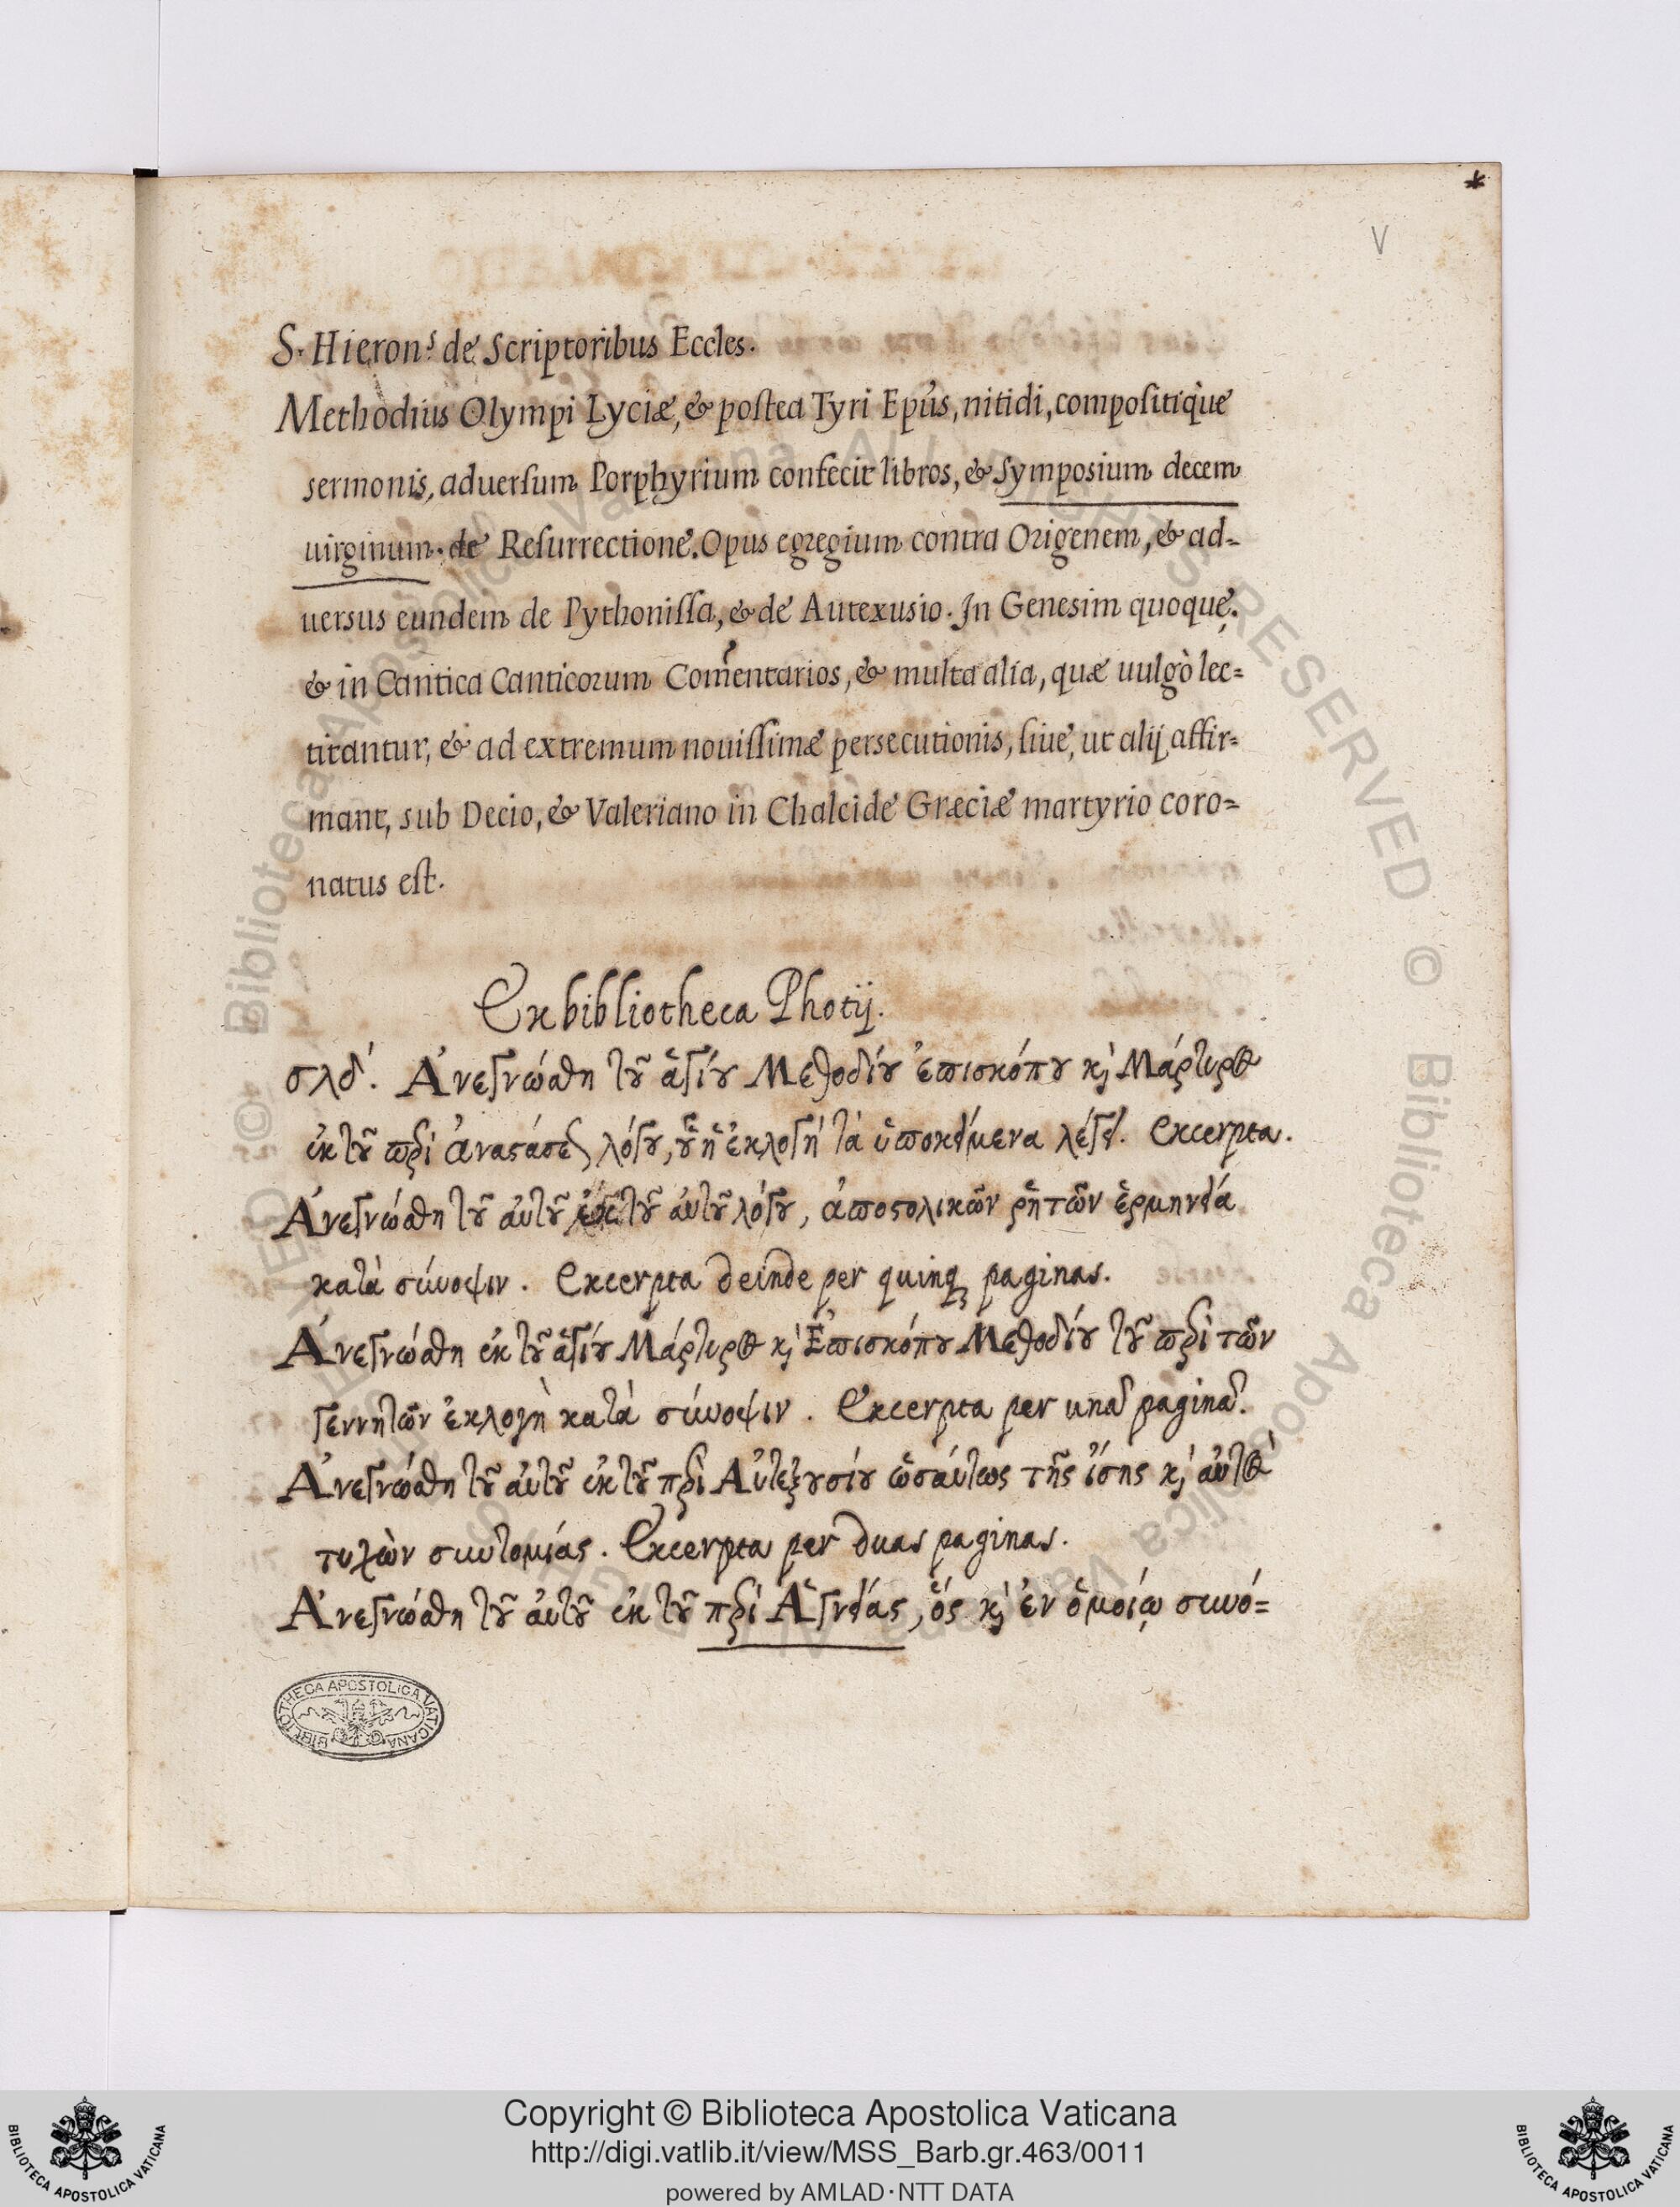 *
V
S. Hieron.s de Scriptoribus Eccles.
Methodius Olympi Lyciæ, & postea Tyri Epũs, nitidi, compositique
sermonis, aduersum Porphyrium confecit libros, & Symposium decem
uirginum. de Resurrectione. Opus egregium contra Origenem, & ad-
uersus eundem de Pythonissa, & de Autexusio. In Genesim quoque.
& in Cantica Canticorum Com̃entarios, & multa alia, quæ uulgò lec=
titantur, & ad extremum nouissimæ persecutionis, siue, ut alij affir=
mant, sub Decio, & Valeriano in Chalcide Græciæ martyrio coro=
natus est.
Ex bibliotheca Photij.
σλδ´. Ἀνεγνώσθη τȣ͂ ἁγίȣ Μεθοδίȣ ἐπισκόπȣ κ̀ Μάρτυρος
ἐκ τȣ͂ περὶ ἀναστάσεως λόγȣ, ȣ̔͂ ἡ ἐκλογὴ τὰ ὑποκείμενα λέγει. Excerpta.
Ἀνεγνώσθη τȣ͂ αὐτȣ͂ ἐκ τȣ͂ αὐτȣ͂ λόγȣ, ἀποστολικῶν ῥητῶν ἑρμηνεία
κατὰ σύνοψιν. Excerpta deinde per quinq; paginas.
Ἀνεγνώσθη ἐκ τȣ͂ ἁγίȣ Μάρτυρος κ̀ Ἐπισκόπȣ Μεθοδίȣ τȣ͂ περὶ τῶν
γεννητῶν ἐκλογὴ κατὰ σύνοψιν. Excerpta per unã paginã.
Ἀνεγνώσθη τȣ͂ αὐτȣ͂ ἐκ τȣ͂ περὶ Αὐτεξȣσίȣ ὡσαύτως τῆς ἴσης κ̀ αὐτὸς
τυχὼν συντομίας. Excerpta per duas paginas.
Ἀνεγνώσθη τȣ͂ αὐτȣ͂ ἐκ τȣ͂ περὶ Ἁγνείας, ὅς κ̀ ἐν ὁμοίῳ συνό=
BIBLIOTHECA APOSTOLICA VATICANA
© Biblioteca Apostolica Vaticana ALL RIGHTS RESERVED © Biblioteca Apostolica Vaticana ALL RIGHTS RESERVED
Copyright © Biblioteca Apostolica Vaticana
http://digi.vatlib.it/view/MSS_Barb.gr.463/0011
powered by AMLAD·NTT DATA
BIBLIOTECA APOSTOLICA VATICANA
BIBLIOTECA APOSTOLICA VATICANA